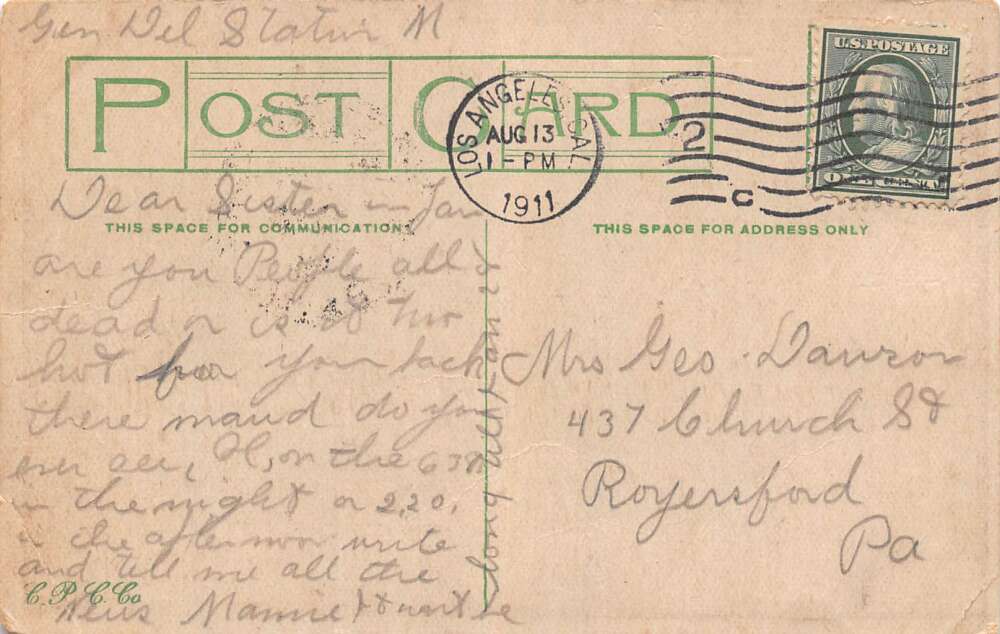 Gen Del Station M
POST CARD
LOS ANGELES, CAL.
AUG 13
1-PM
1911
2
C
U.S. POSTAGE
Dear Sister in Law
THIS SPACE FOR COMMUNICATION
are you People all
dead or is it two
hot for you back
there maud do you
ever see, H, on the 6
in the night or 2,20,
in the afternoon write
and tell me all the
news Mamie
long
THIS SPACE FOR ADDRESS ONLY
Mrs Geo. Dawson
437 Church St
Royersford
Pa
C.P.C.Co